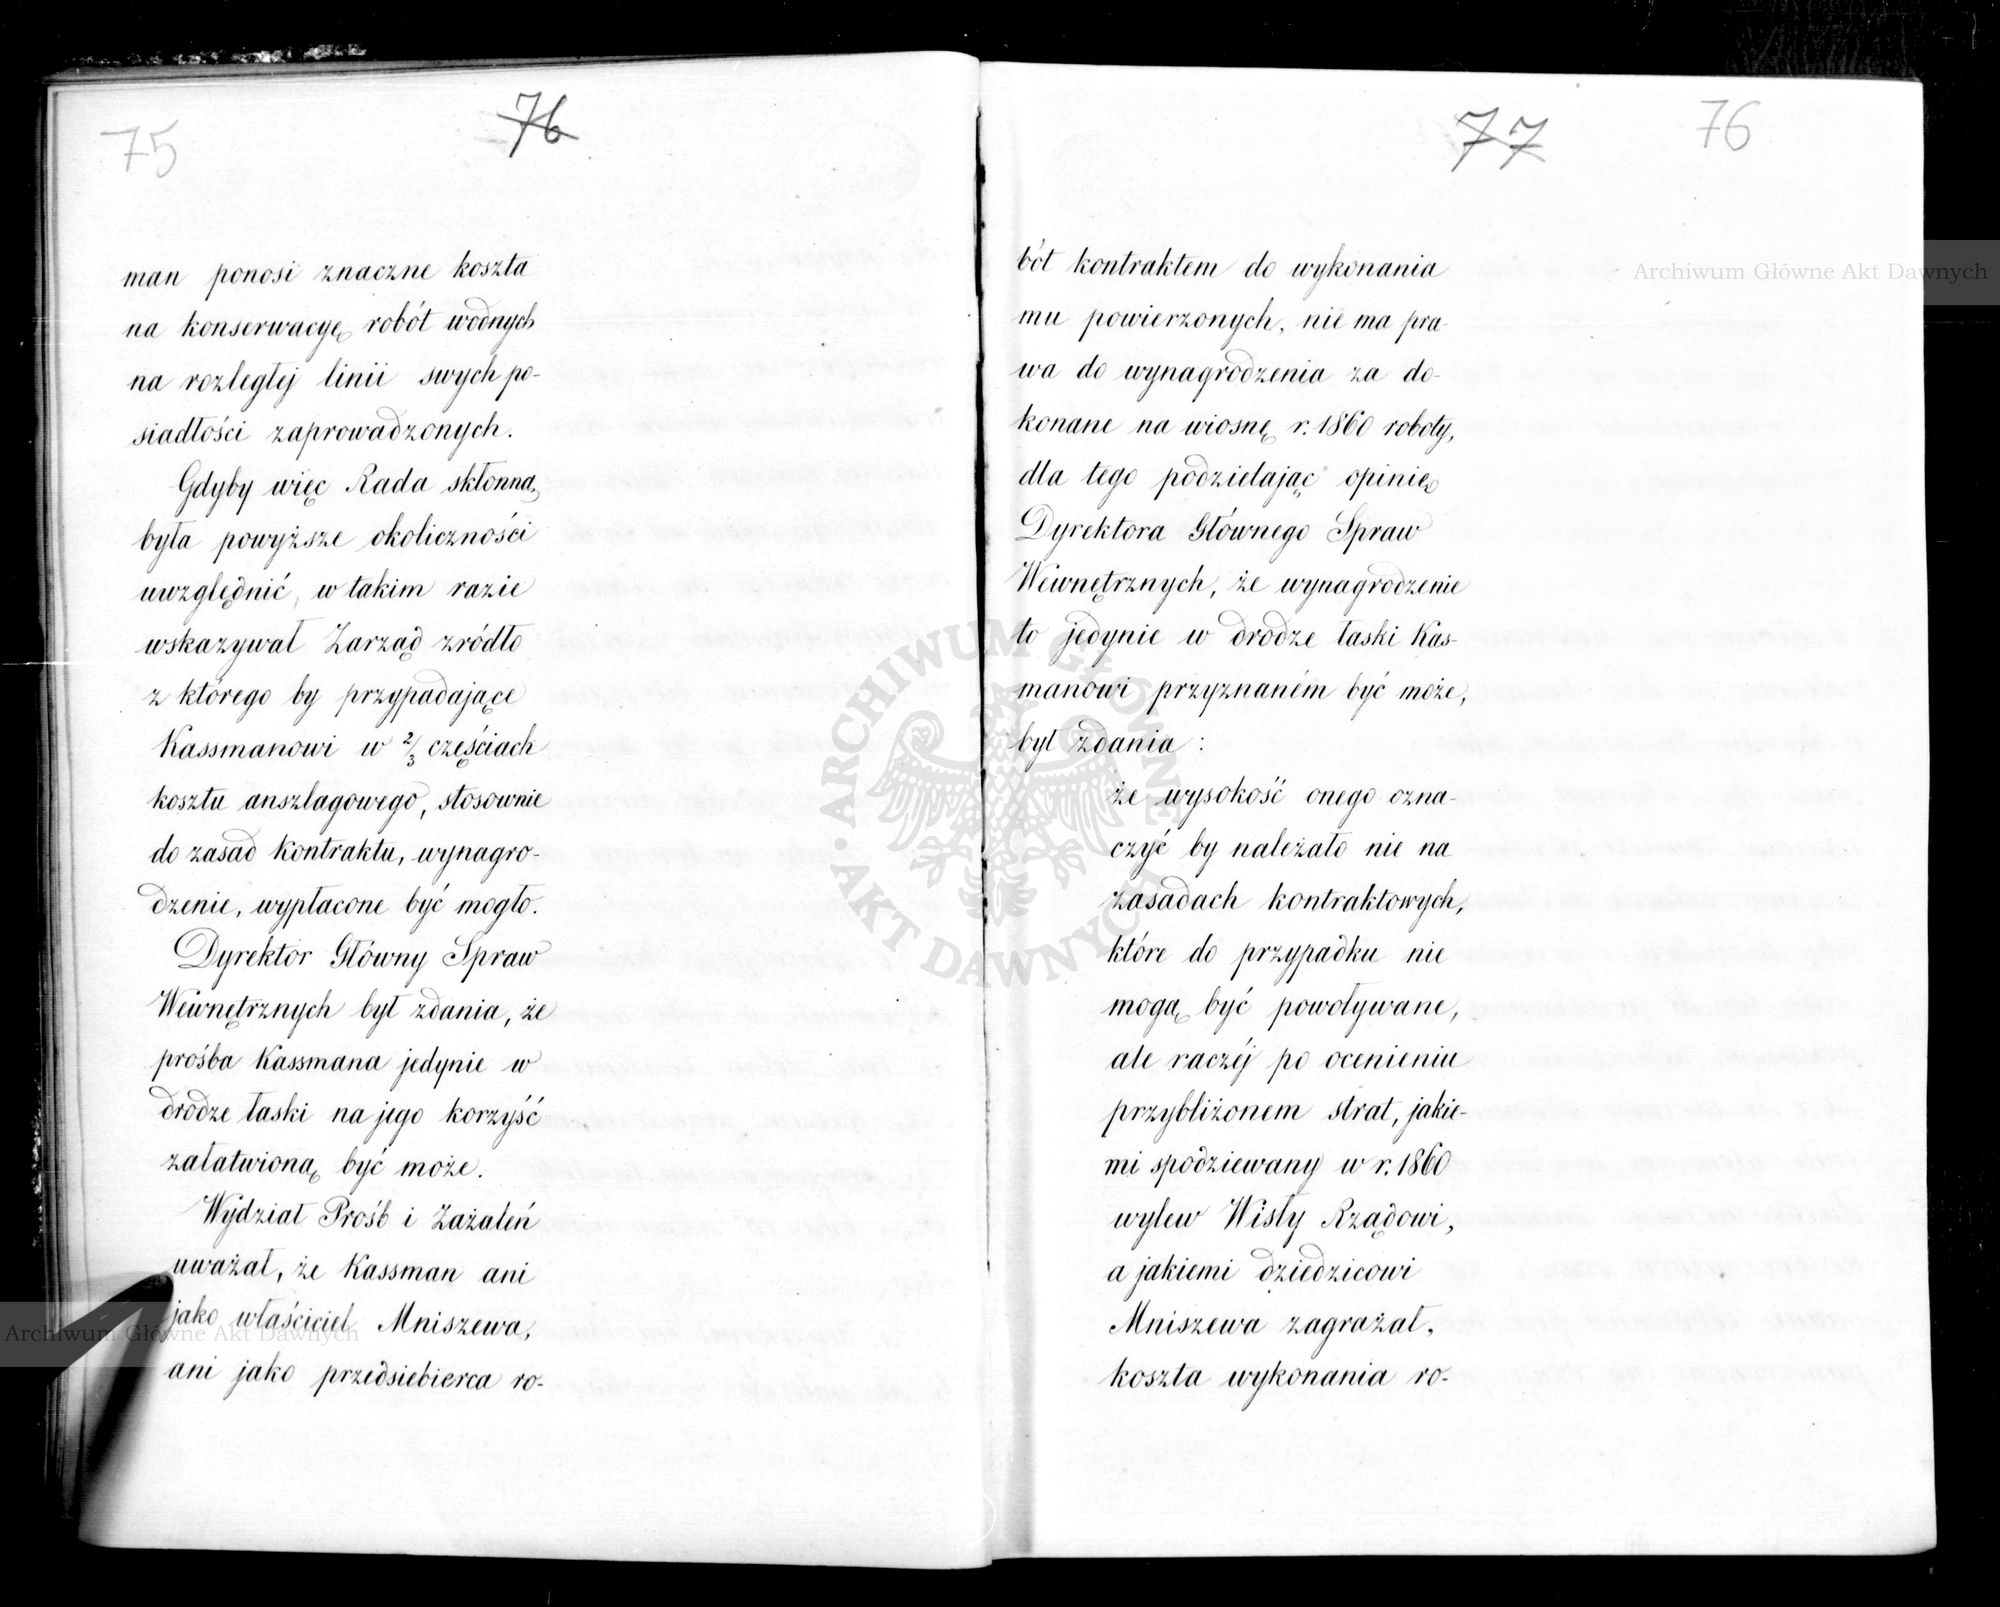 75
76
man ponosi znaczne koszta
na konserwacyę robót wodnych
na rozległej linii swych po-
siadłości zaprowadzonych.
Gdyby więc Rada skłonną
była powyższe okoliczności
uwzględnić, w takim razie
wskazywał Zarząd zródło
z którego by przypadające
Kassmanowi w 2/3 częściach
kosztu anszlagowego, stosownie
do zasad kontraktu, wynagro-
dzenie, wypłacone być mogło.
Dyrektor Główny Spraw
Wewnętrznych był zdania, że
prośba Kassmana jedynie w
drodze łaski na jego korzyść
załatwioną być może.
Wydział Prośb i Zażaleń
uważał, że Kassman ani
jako właściciel Mniszewa,
ani jako przedsiebierca ro-
77
76
bót kontraktem do wykonania
mu powierzonych, nie ma pra-
wa do wynagrodzenia za do-
konane na wiosnę r. 1860 roboty,
dla tego podzielając opinię
Dyrektora Głównego Spraw
Wewnętrznych, że wynagrodzenie
to jedynie w drodze łaski Kas-
manowi przyznaném być może,
był zdania :
że wysokość onego ozna-
czyć by należało nie na
zasadach kontraktowych,
które do przypadku nie
mogą być powoływane,
ale raczéj po ocenieniu
przybliżonem strat, jakie-
mi spodziewany w r. 1860
wylew Wisły Rządowi,
a jakiemi dziedzicowi
Mniszewa zagrażał,
koszta wykonania ro-
Archiwum Główne Akt Dawnych
Archiwum Główne Akt Dawnych
ARCHIWUM GŁÓWNE
AKT DAWNYCH